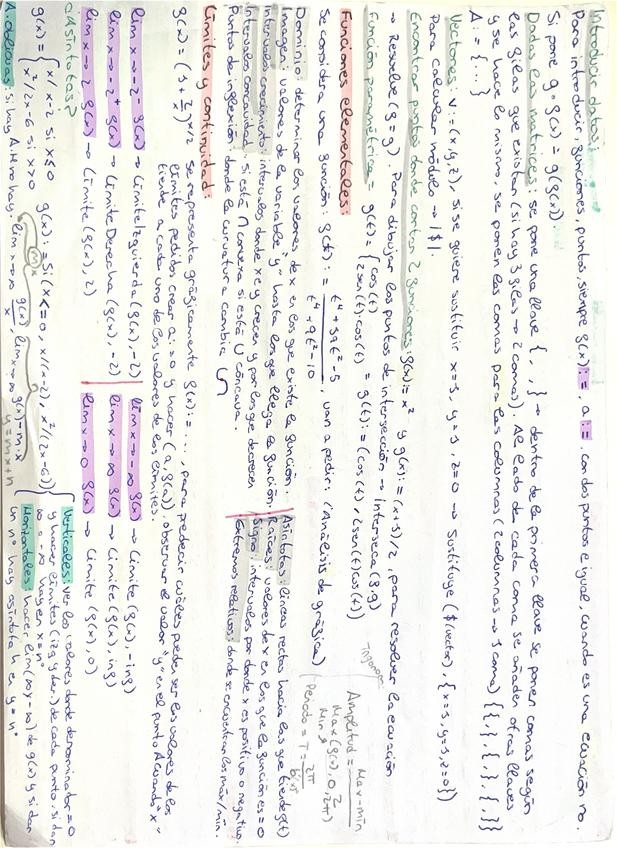 Introducir datos:
Para introducir, funciones, puntos, siempre f(x):=, a:=, con dos puntos e igual, cuando es una ecuación no.
Si pone g∘f(x) = g(f(x)).
Dadas las matrices: se pone una llave {, , } → dentro de la primera llave se ponen comas según
las filas que existan (si hay 3 filas → 2 comas). Al lado de cada coma se añaden otras llaves
y se hace lo mismo, se ponen las comas para las columnas (2 columnas → 1 coma) {{,},{,},{,}}
A:={...}
Vectores: v:=(x,y,z), si se quiere sustituir x=1, y=1, z=0 → Sustituye ($(vector), {x=1,y=1,z=0})
Para calcular módulo → |$1|.
Encontrar puntos donde cortan 2 funciones: f(x):=x² y g(x):=(x+3)/2, para resolver la ecuación
→ Resolve (f=g). Para dibujar los puntos de intersección → interseca (f,g)
Función paramétrica = g(t) = { cos(t) 2sen(t)·cos(t) = g(t):=(cos(t), 2sen(t)cos(t))
Funciones elementales:
Trigonom.
Amplitud = Max-min / 2
Max(f(x), 0, 2π)
Min
Periodo = T = 2π
Se considera una función: f(t):= t⁴+39t²-5 / t⁴+9t²-10 van a pedir: (Análisis de gráfica)
Dominio: determinar los valores de x en los que existe la función.
Imagen: valores de la variable "y" hasta los que llega la función.
Intervalos crecimiento: intervalos donde x e y crecen y por los que decrecen
Intervalos concavidad: si está ∩ convexa si está ∪ cóncava.
Puntos de inflexión: donde la curvatura cambia
Asíntotas: líneas rectas hacia las que tiende f(t)
Raíces: valores de x en los que la función es = 0
Signo: intervalos por donde x es positivo o negativo.
Extremos relativos: donde se encuentran los máx/min.
Límites y continuidad:
f(x) = (1+2/x)^x/2 se representa gráficamente f(x):=..., para predecir cuáles puede ser los valores de los
límites pedidos crear a:=0 y hacer (a, f(a)), observar el valor "y" en el punto A cuando "x"
tiende a cada uno de los valores de los límites.
lim x→-2⁻ f(x) → LímiteIzquierda (f(x),-2)
lim x→-2⁺ f(x) → LímiteDerecha (f(x),-2)
lim x→2 f(x) → Límite (f(x),2)
lim x→-∞ f(x) → Límite (f(x),-inf)
lim x→∞ f(x) → Límite (f(x),inf)
lim x→0 f(x) → Límite (f(x),0)
¿Asíntotas?
g(x) = { x/x-2 si x≤0 x²/2x-6 si x>0 g(x):=Si(x<=0, x/(x-2), x²/(2x-6))
Verticales: ver los valores donde denominador = 0
y hacer límites (izq y der.) de cada punto, si dan
∞ o -∞ hay en x=nº
Horizontales: hacer lim (∞ y -∞) de g(x) y si dan
un nº hay asíntota en y=nº
A. oblicuas: si hay A.H no hay. lim x→∞ g(x)/x, lim x→∞ g(x)-m·x
m
y=mx+n